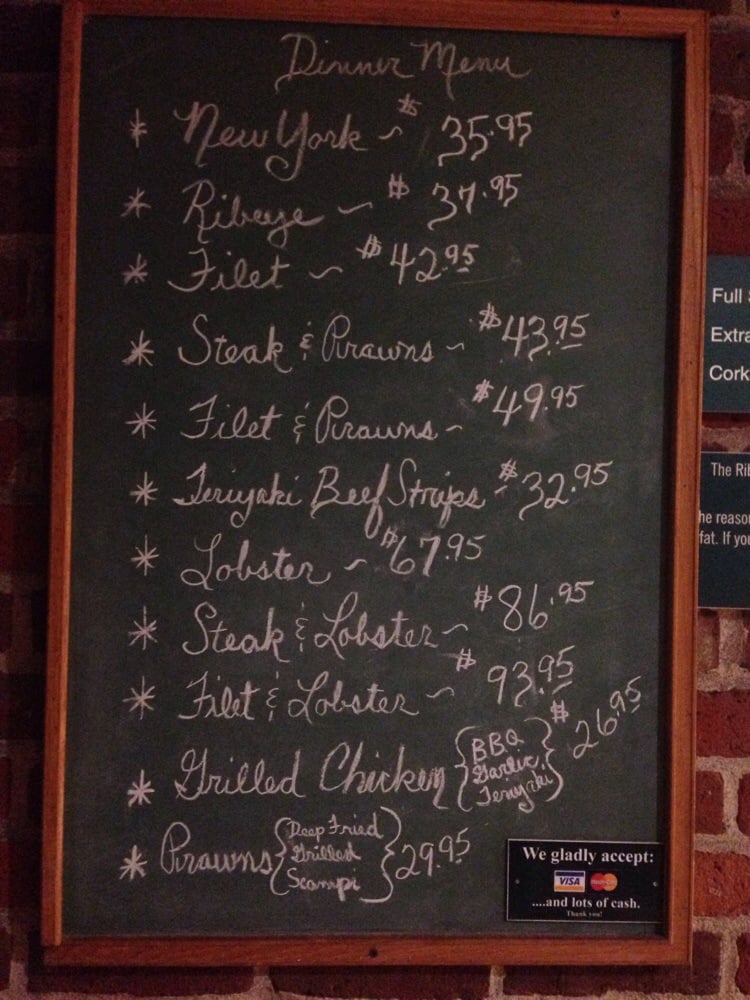 Dinner Menu
* New York ~ $35.95
* Ribeye ~ $37.95
* Filet ~ $42.95
* Steak & Prawns ~ $43.95
* Filet & Prawns ~ $49.95
* Teriyaki Beef Strips ~ $32.95
* Lobster ~ $67.95
* Steak & Lobster ~ $86.95
* Filet & Lobster ~ $93.95
* Grilled Chicken { BBQ Garlic, Teriyaki } $26.95
* Prawns { Deep Fried Grilled Scampi } 29.95
We gladly accept:
VISA MasterCard
....and lots of cash.
Thank you!
Full
Extra
Cork
The Rib
he reaso
fat. If you